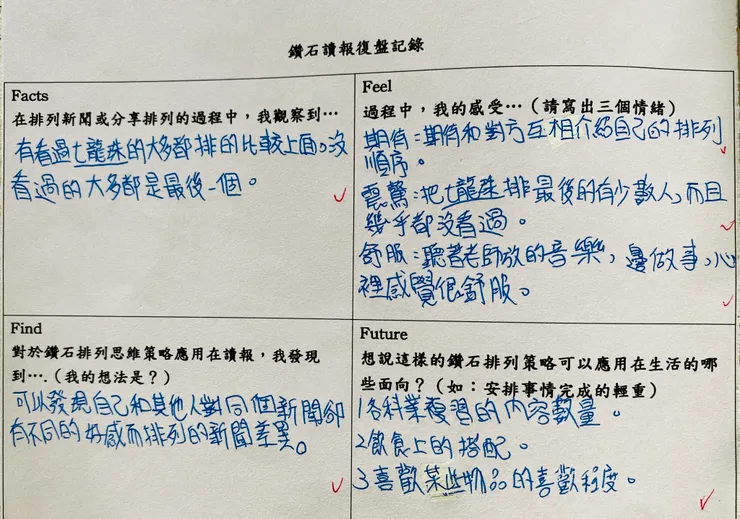 鑽石讀報復盤記錄
Facts
在排列新聞或分享排列的過程中，我觀察到…
有看過七龍珠的大多都排的比較上面。沒
看過的大多都是最後一個。
Feel
過程中，我的感受…（請寫出三個情緒）
期待：期待和對方互相介紹自己的排列
順序。
震驚：把七龍珠排最後的有少數人，而且
幾乎都沒看過。
舒服：聽著老師放的音樂，邊做事，心
裡感覺很舒服。
Find
對於鑽石排列思維策略應用在讀報，我發現
到….（我的想法是？）
可以發現自己和其他人對同個新聞卻
有不同的好感而排列的新聞差異。
Future
想說這樣的鑽石排列策略可以應用在生活的哪
些面向？（如：安排事情完成的輕重）
1各科業複習的內容數量。
2飲食上的搭配。
3喜歡某些物品的喜歡程度。